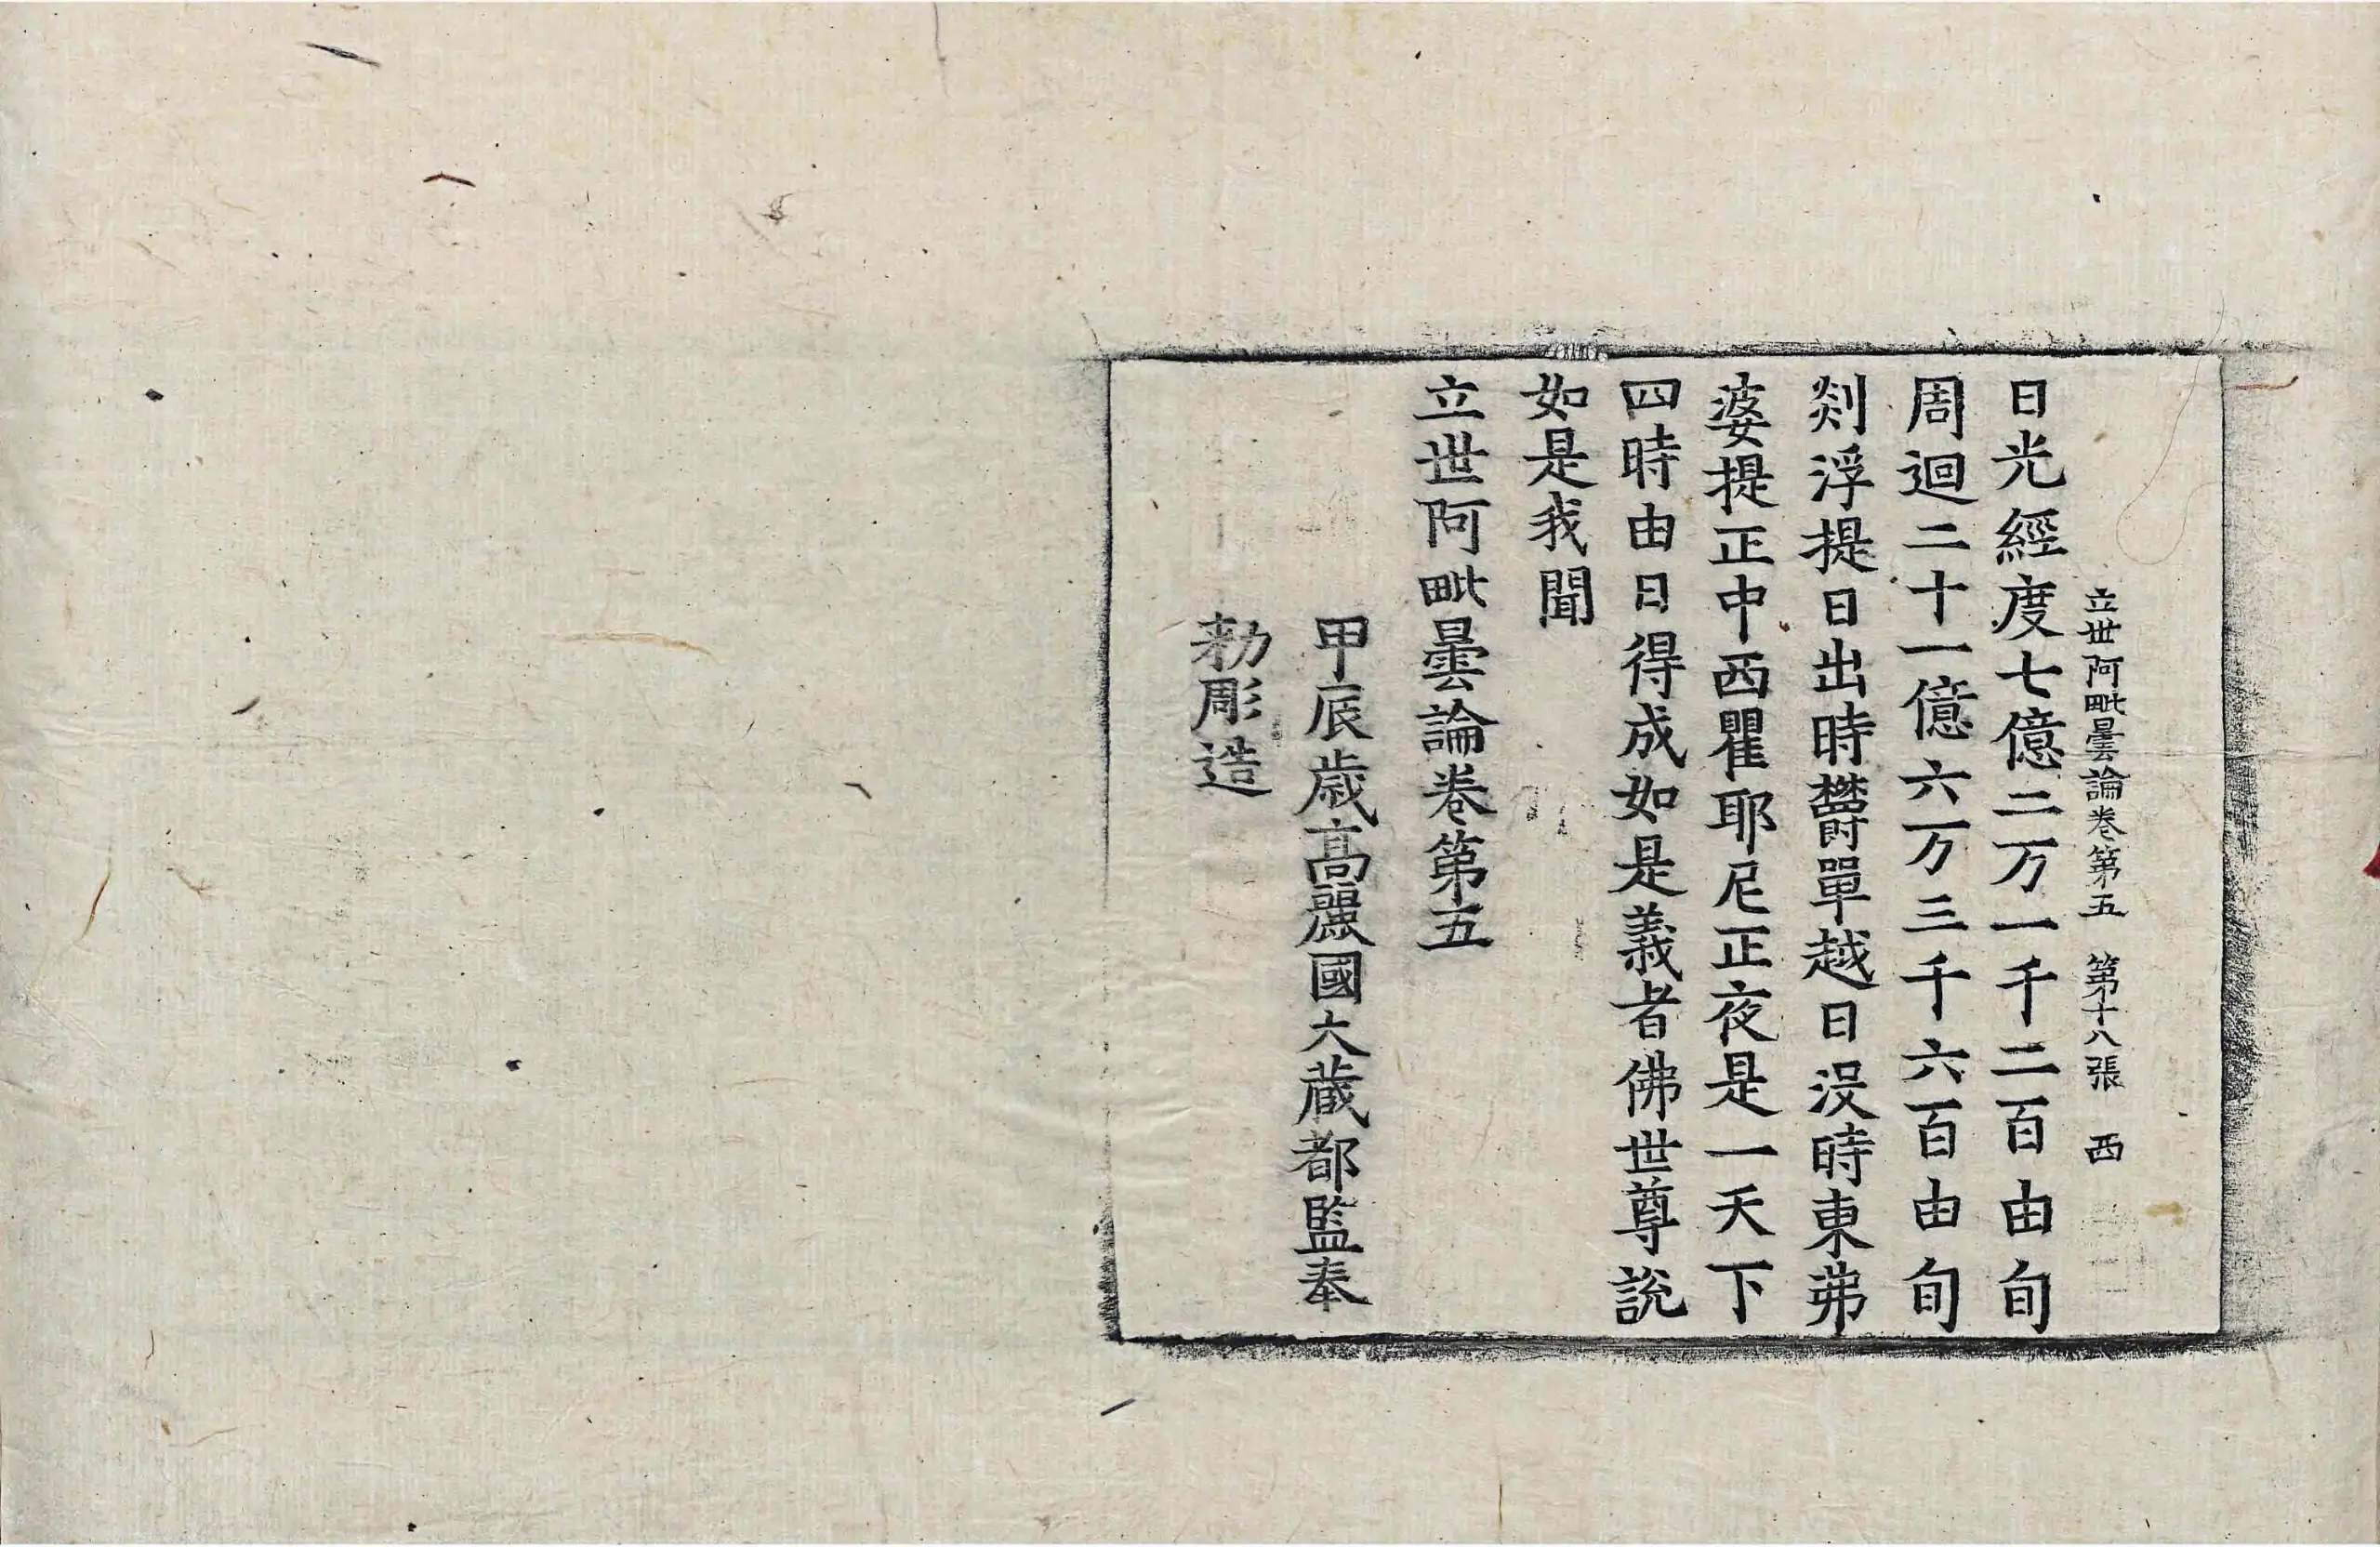 立世阿毗曇論卷第五 第十八張 西
日光經度七億二万一千二百由旬
周迴二十一億六万三千六百由旬
剡浮提日出時欝單越日没時東弗
婆提正中西瞿耶尼正夜是一天下
四時由日得成如是義者佛世尊說
如是我聞
立世阿毗曇論卷第五
甲辰歲高麗國大藏都監奉
勑彫造